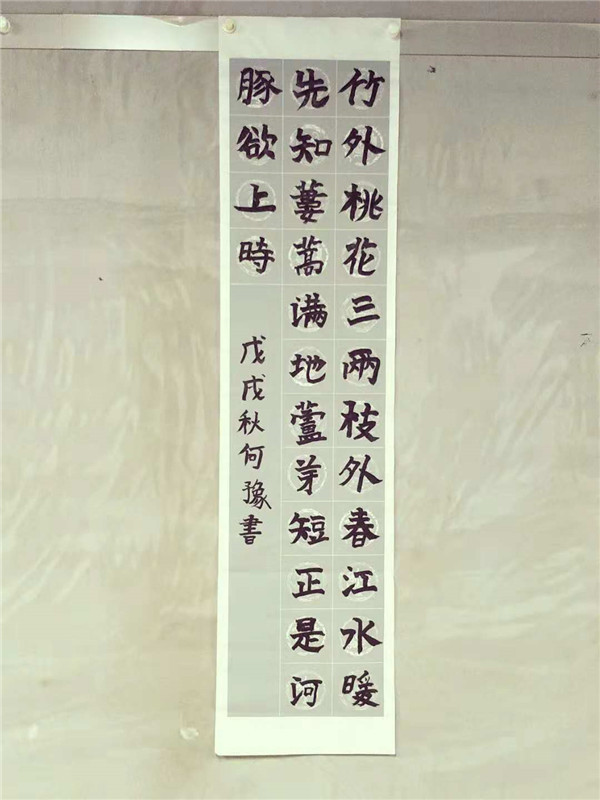 竹外桃花三两枝外春江水暖
先知蔞蒿满地蘆芽短正是河
豚欲上時
戊戌秋何豫書